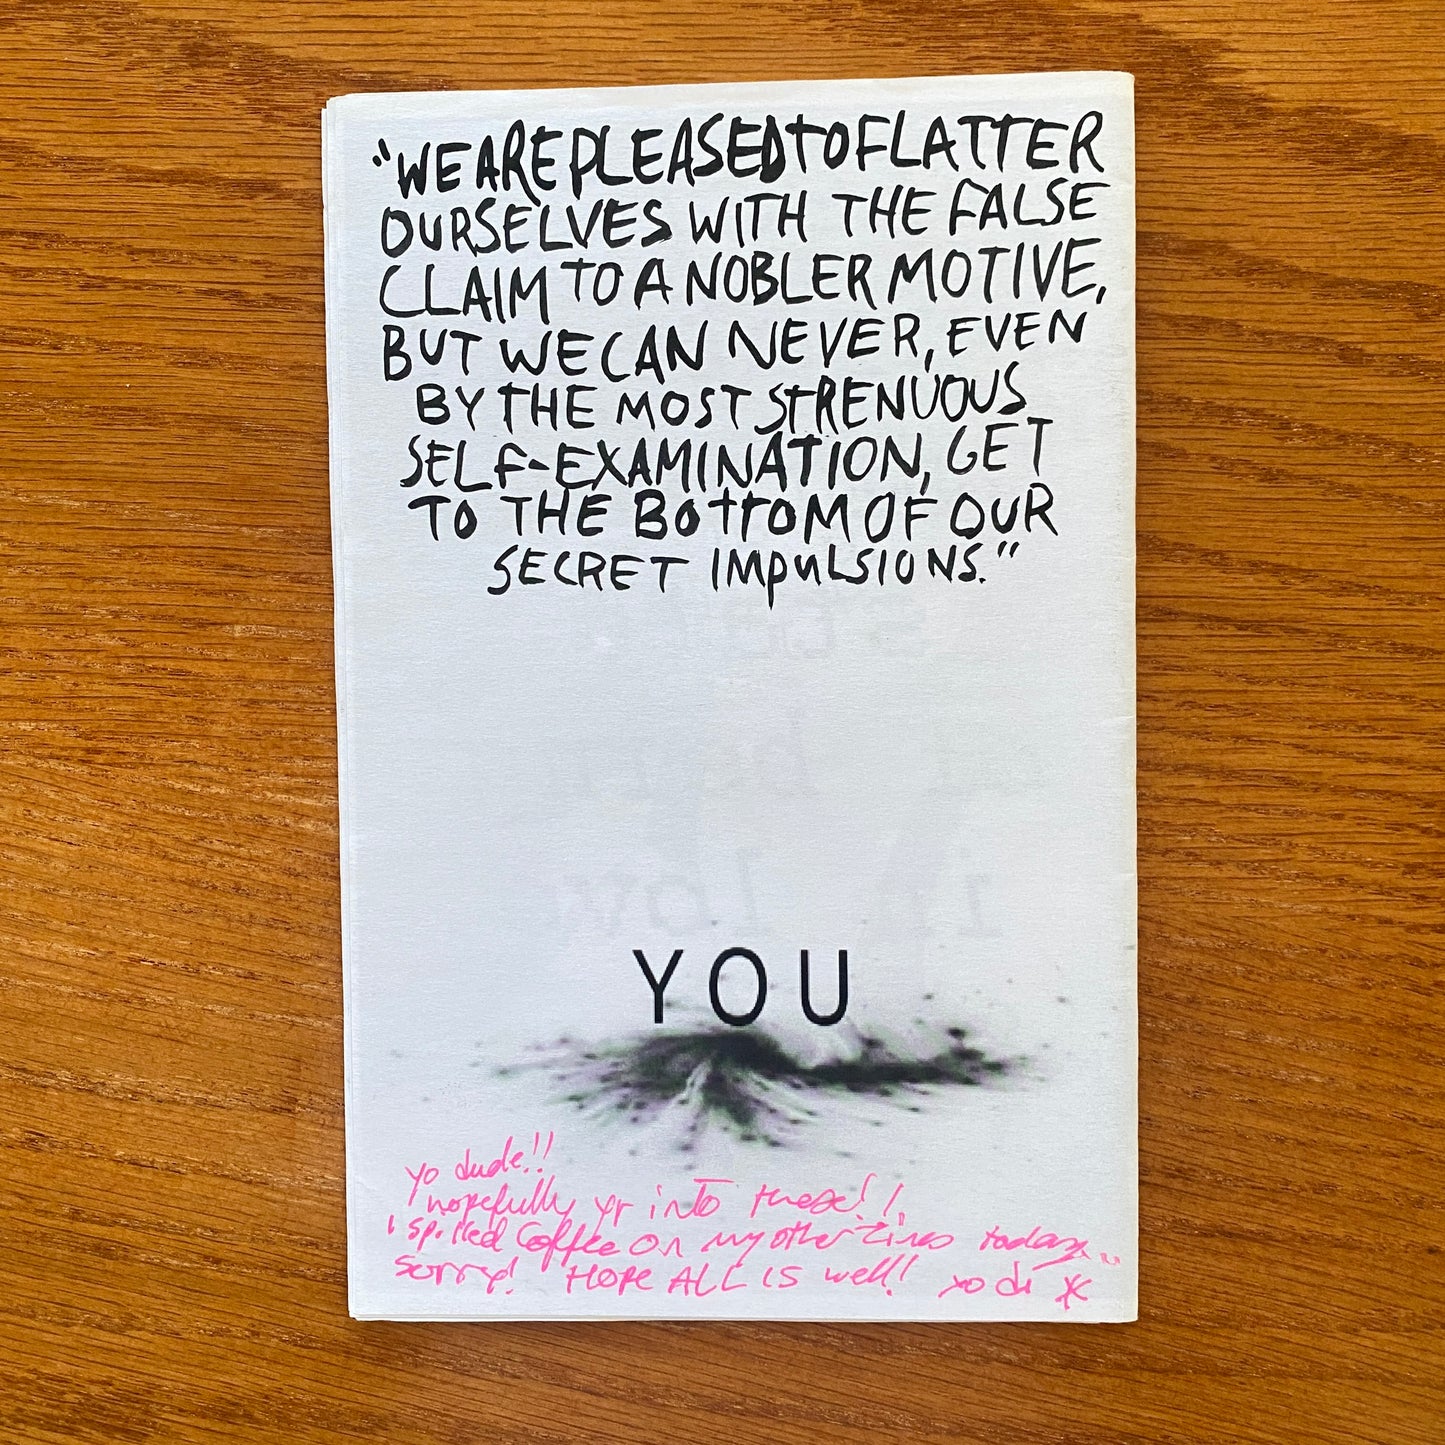 "WE ARE PLEASED TO FLATTER
OURSELVES WITH THE FALSE
CLAIM TO A NOBLER MOTIVE,
BUT WE CAN NEVER, EVEN
BY THE MOST STRENUOUS
SELF-EXAMINATION, GET
TO THE BOTTOM OF OUR
SECRET IMPULSIONS."
YOU
yo dude!!
hopefully yr into these!!
i spilled coffee on my other zines today..
sorry! HOPE ALL IS well! xo